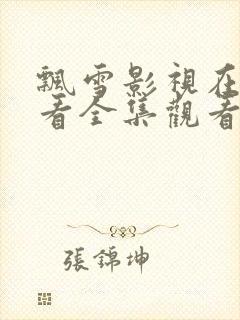 飄雪影視在
看全集觀看
張錦坤